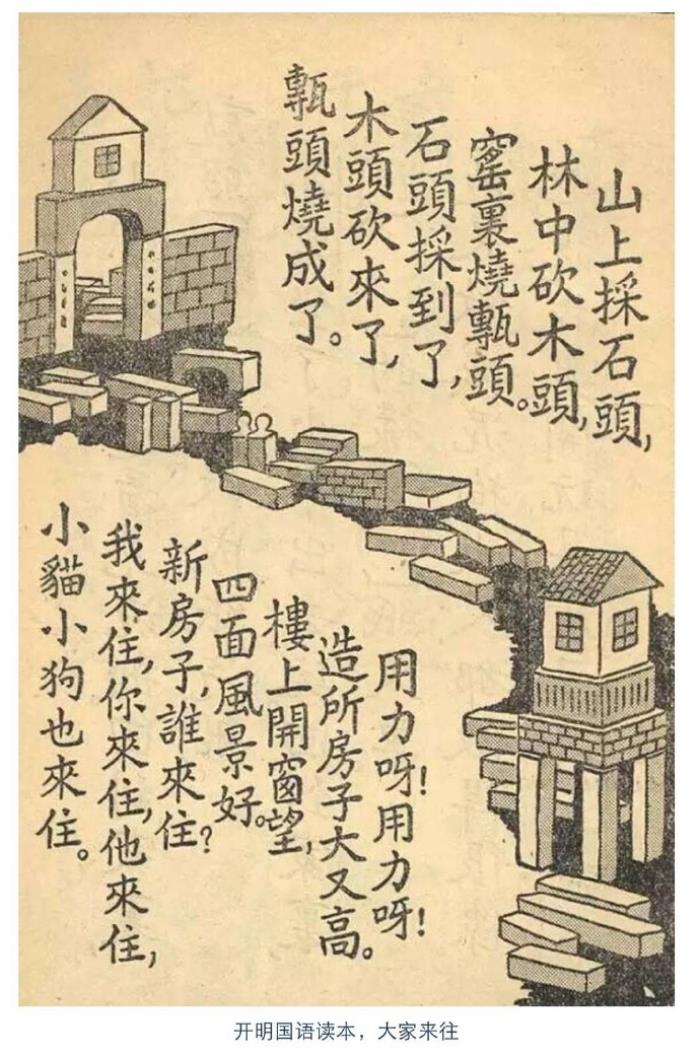 山上採石頭，
林中砍木頭，
窰裏燒甎頭。
石頭採到了，
木頭砍來了，
甎頭燒成了。
用力呀！用力呀！
造所房子大又高。
樓上開窗望，
四面風景好。
新房子，誰來住？
我來住，你來住，他來住，
小貓小狗也來住。
开明国语读本，大家来往